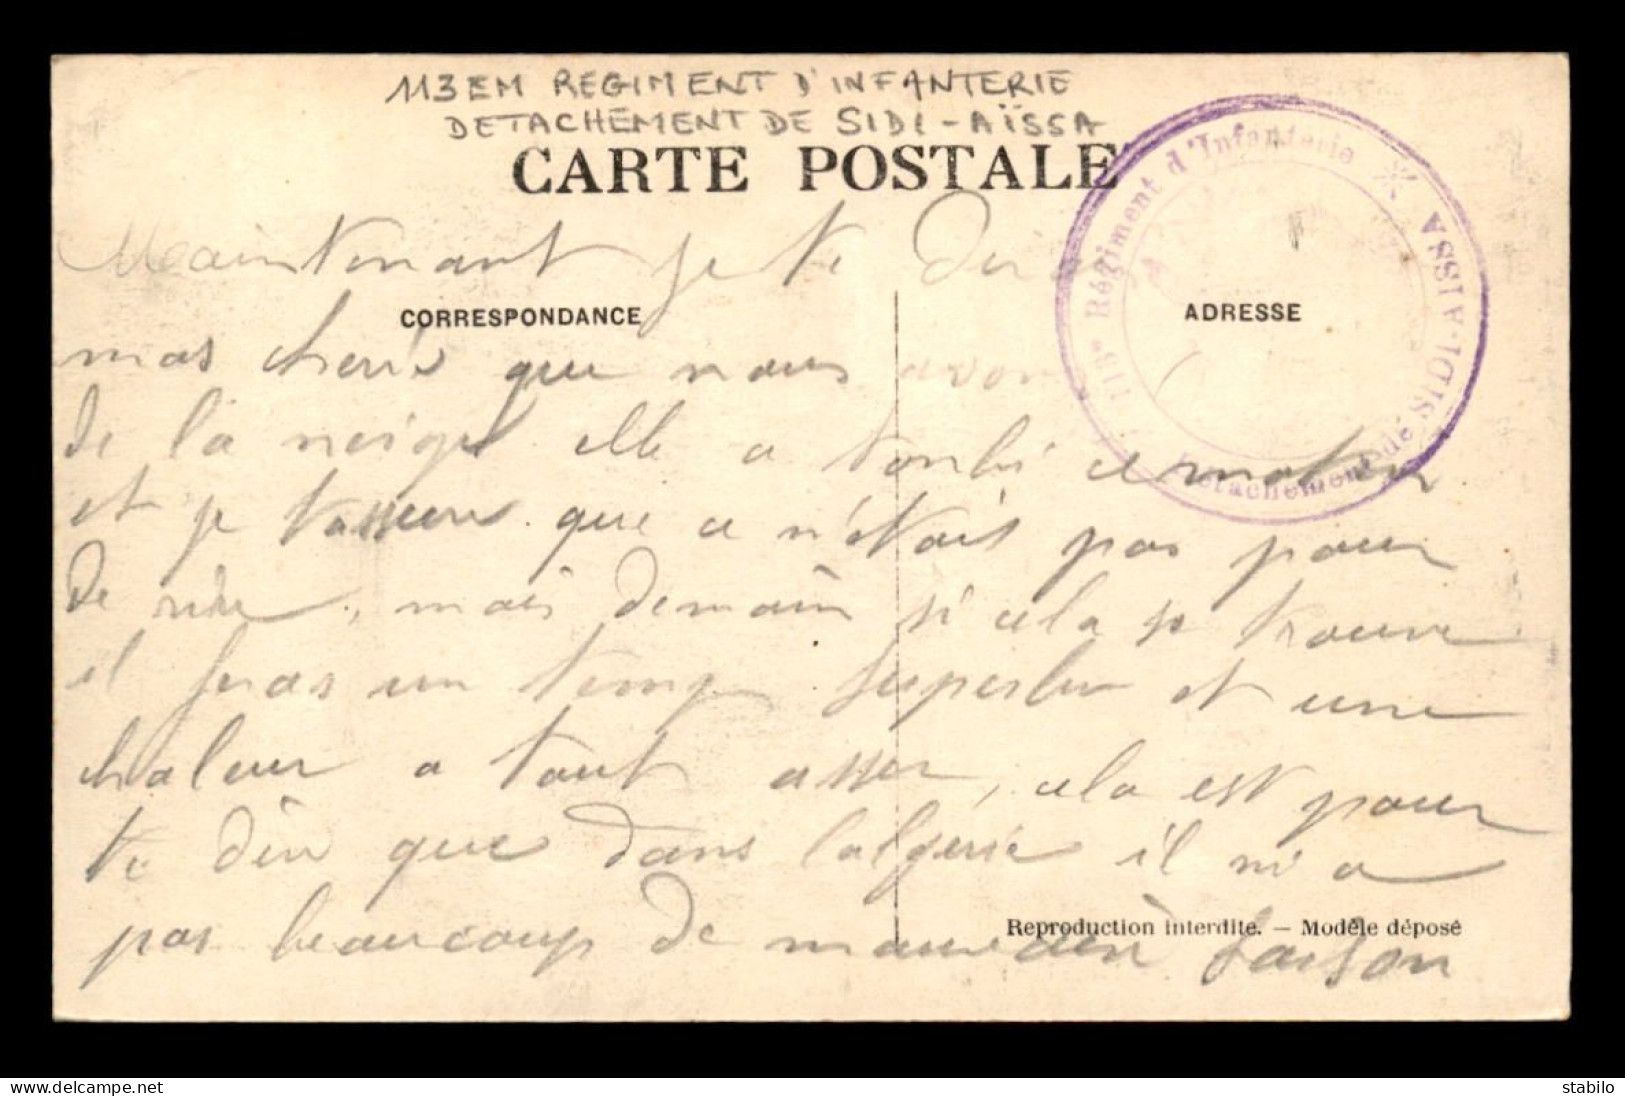 113EM REGIMENT D'INFANTERIE
DETACHEMENT DE SIDI-AÏSSA
CARTE POSTALE
113e Régiment d'Infanterie
Détachement de SIDI-AISSA
Maintenant je te
CORRESPONDANCE
ADRESSE
mas cheris que nous avon
de la neige elle a tonbé ce matin
et je tassure que ce n'étais pas pour
de rire, mais demain si cela se trouve
il feras un temps superbe et une
chaleur a tout asser, cela est pour
te dire que dans lalgerie il ni a
Reproduction interdite. — Modèle déposé
pas beaucoup de saison
www.delcampe.net
stabilo